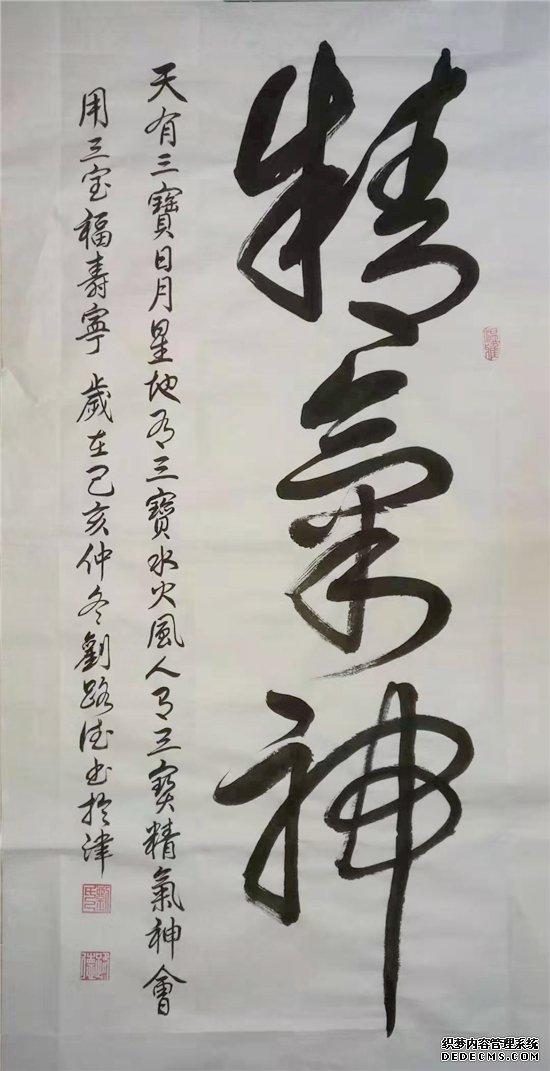 精氣神
天有三寶日月星地有三寶水火風人有三寳精氣神會
用三宝福壽寧 歲在己亥仲冬劉路德书於津
织梦内容管理系统
DEDECMS.COM